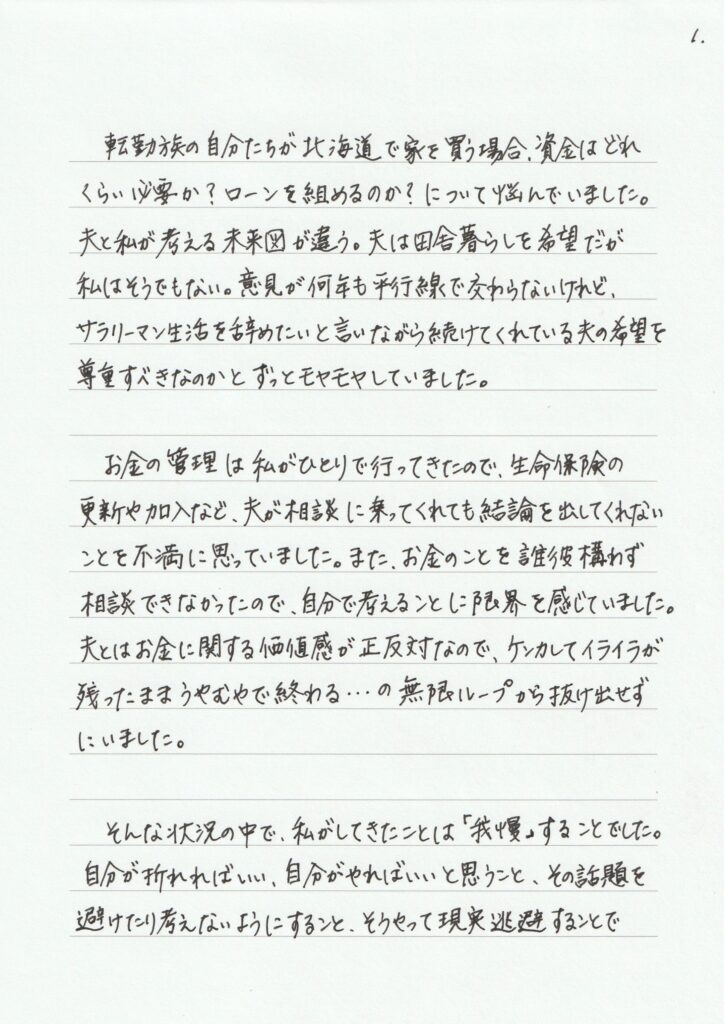 1.
転勤族の自分たちが北海道で家を買う場合、資金はどれ
くらい必要か？ローンを組めるのか？について悩んでいました。
夫と私が考える未来図が違う。夫は田舎暮らしを希望だが
私はそうでもない。意見が何年も平行線で交わらないけれど、
サラリーマン生活を辞めたいと言いながら続けてくれている夫の希望を
尊重すべきなのかとずっとモヤモヤしていました。
お金の管理は私がひとりで行ってきたので、生命保険の
更新や加入など、夫が相談に乗ってくれても結論を出してくれない
ことを不満に思っていました。また、お金のことを誰彼構わず
相談できなかったので、自分で考えることに限界を感じていました。
夫とはお金に関する価値感が正反対なので、ケンカしてイライラが
残ったままうやむやで終わる…の無限ループから抜け出せず
にいました。
そんな状況の中で、私がしてきたことは「我慢」することでした。
自分が折れればいい、自分がやればいいと思うこと、その話題を
避けたり考えないようにすること、そうやって現実逃避することで